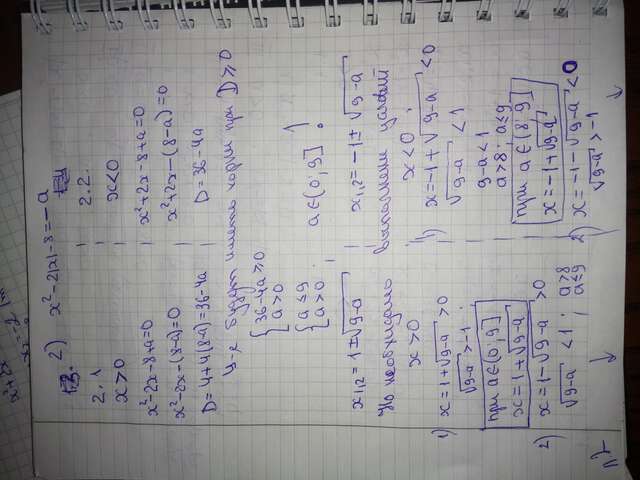 2) x²-2|x|-8=-a
2.1
x>0
x²-2x-8+a=0
x²-2x-(8-a)=0
D=4+4(8-a)=36-4a
2.2.
x<0
x²+2x-8+a=0
x²+2x-(8-a)=0
D=36-4a
Ур-е будет иметь корни при D≥0
{36-4a≥0
a>0
{a≤9
a>0
a∈(0;9]
!
x₁,₂=1±√9-a
x₁,₂=-1±√9-a
Но необходимо выполнение условий
x>0
1) x=1+√9-a>0
√9-a>-1
при a∈(0;9]
x=1+√9-a
2) x=1-√9-a>0
√9-a<1; a>8
a≤9
x<0
1) x=-1+√9-a<0
√9-a<1
9-a<1
a>8; a≤9
при a∈(8;9]
x=-1+√9-a
2) x=-1-√9-a<0
√9-a>-1